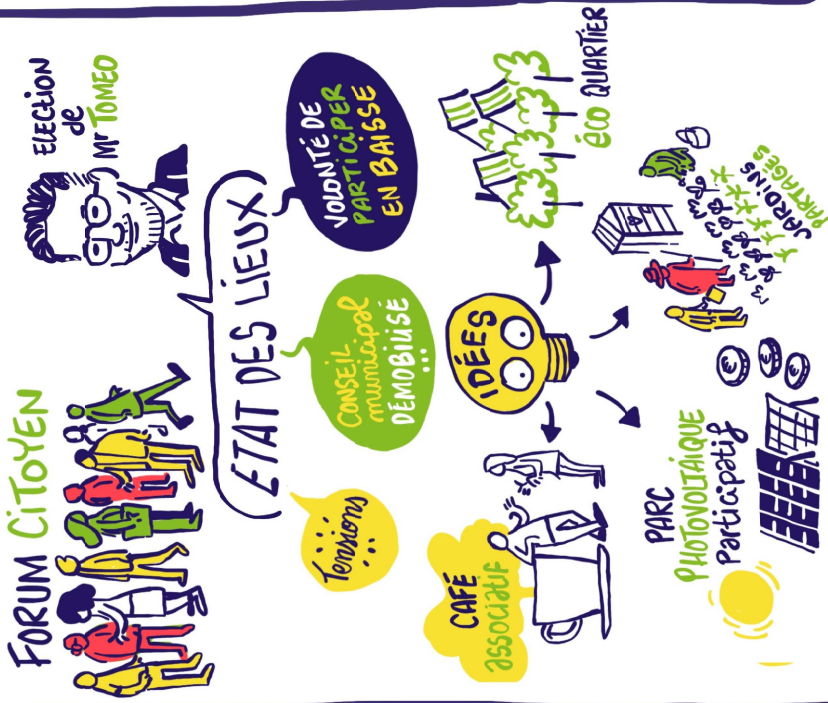 FORUM CiTOYEN
ELECTION
de
Mr TOMEO
ETAT DES LIEUX
Tensions
...
CONSEIL
municipal
DÉMOBILISÉ
...
VOLONTÉ DE
PARTICIPER
EN BAISSE
IDÉES
CAFÉ
associatif
PARC
PHOTOVOLTAÏQUE
Participatif
JARDINS
PARTAGÉS
éco QUARTIER